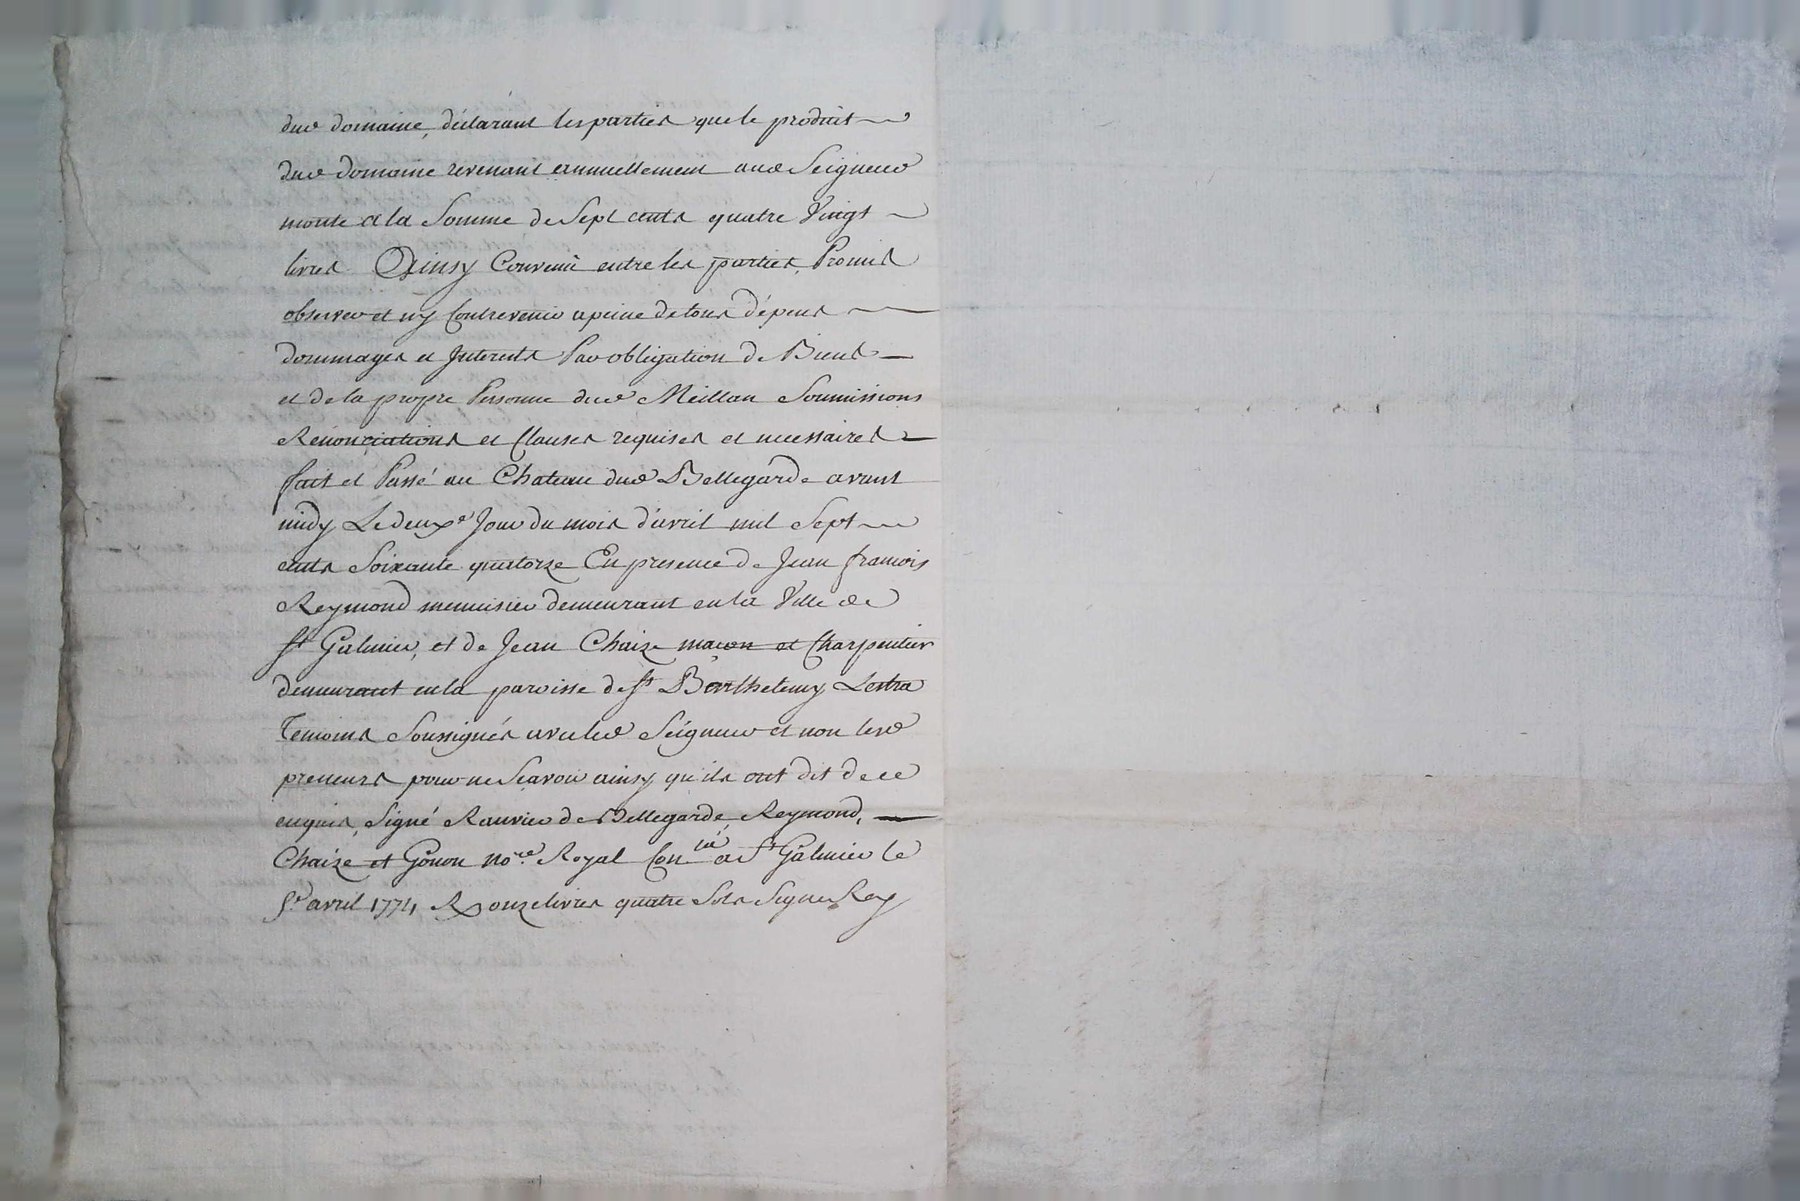 dud domaine, déclarant les parties que le produit
dud domaine revenant annuellement aud Seigneur
monte a la Somme de Sept cents quatre Vingt
livres Ainsy Convenu entre les parties, Promis
observer et ny Contrevenir a peine de tous dépens
dommages et Interests Par obligation de Biens
et de la propre Personne dud Meillan Soumissions
Renonciations et Clauses requises et necessaires
fait et Passé au Chateau dud Bellegarde avant
midy Le deuxe Jour du mois d'avril mil Sept
cents Soixante quatorze En presence de Jean francois
Reymond menuisier demeurant en la Ville de
St Galmier, et de Jean Chaize macon et Charpentier
demeurant en la paroisse de St Barthelemy Lestra
Temoins Soussignés avec led Seigneur et non lesd
preneurs pour ne Scavoir ainsy qu'ils ont dit de ce
enquis, Signé Rauvier de Bellegarde, Reymond,
Chaize et Gonon nore Royal Con lé a St Galmier le
avril 1774 R onze livres quatre Sols Signé Rey